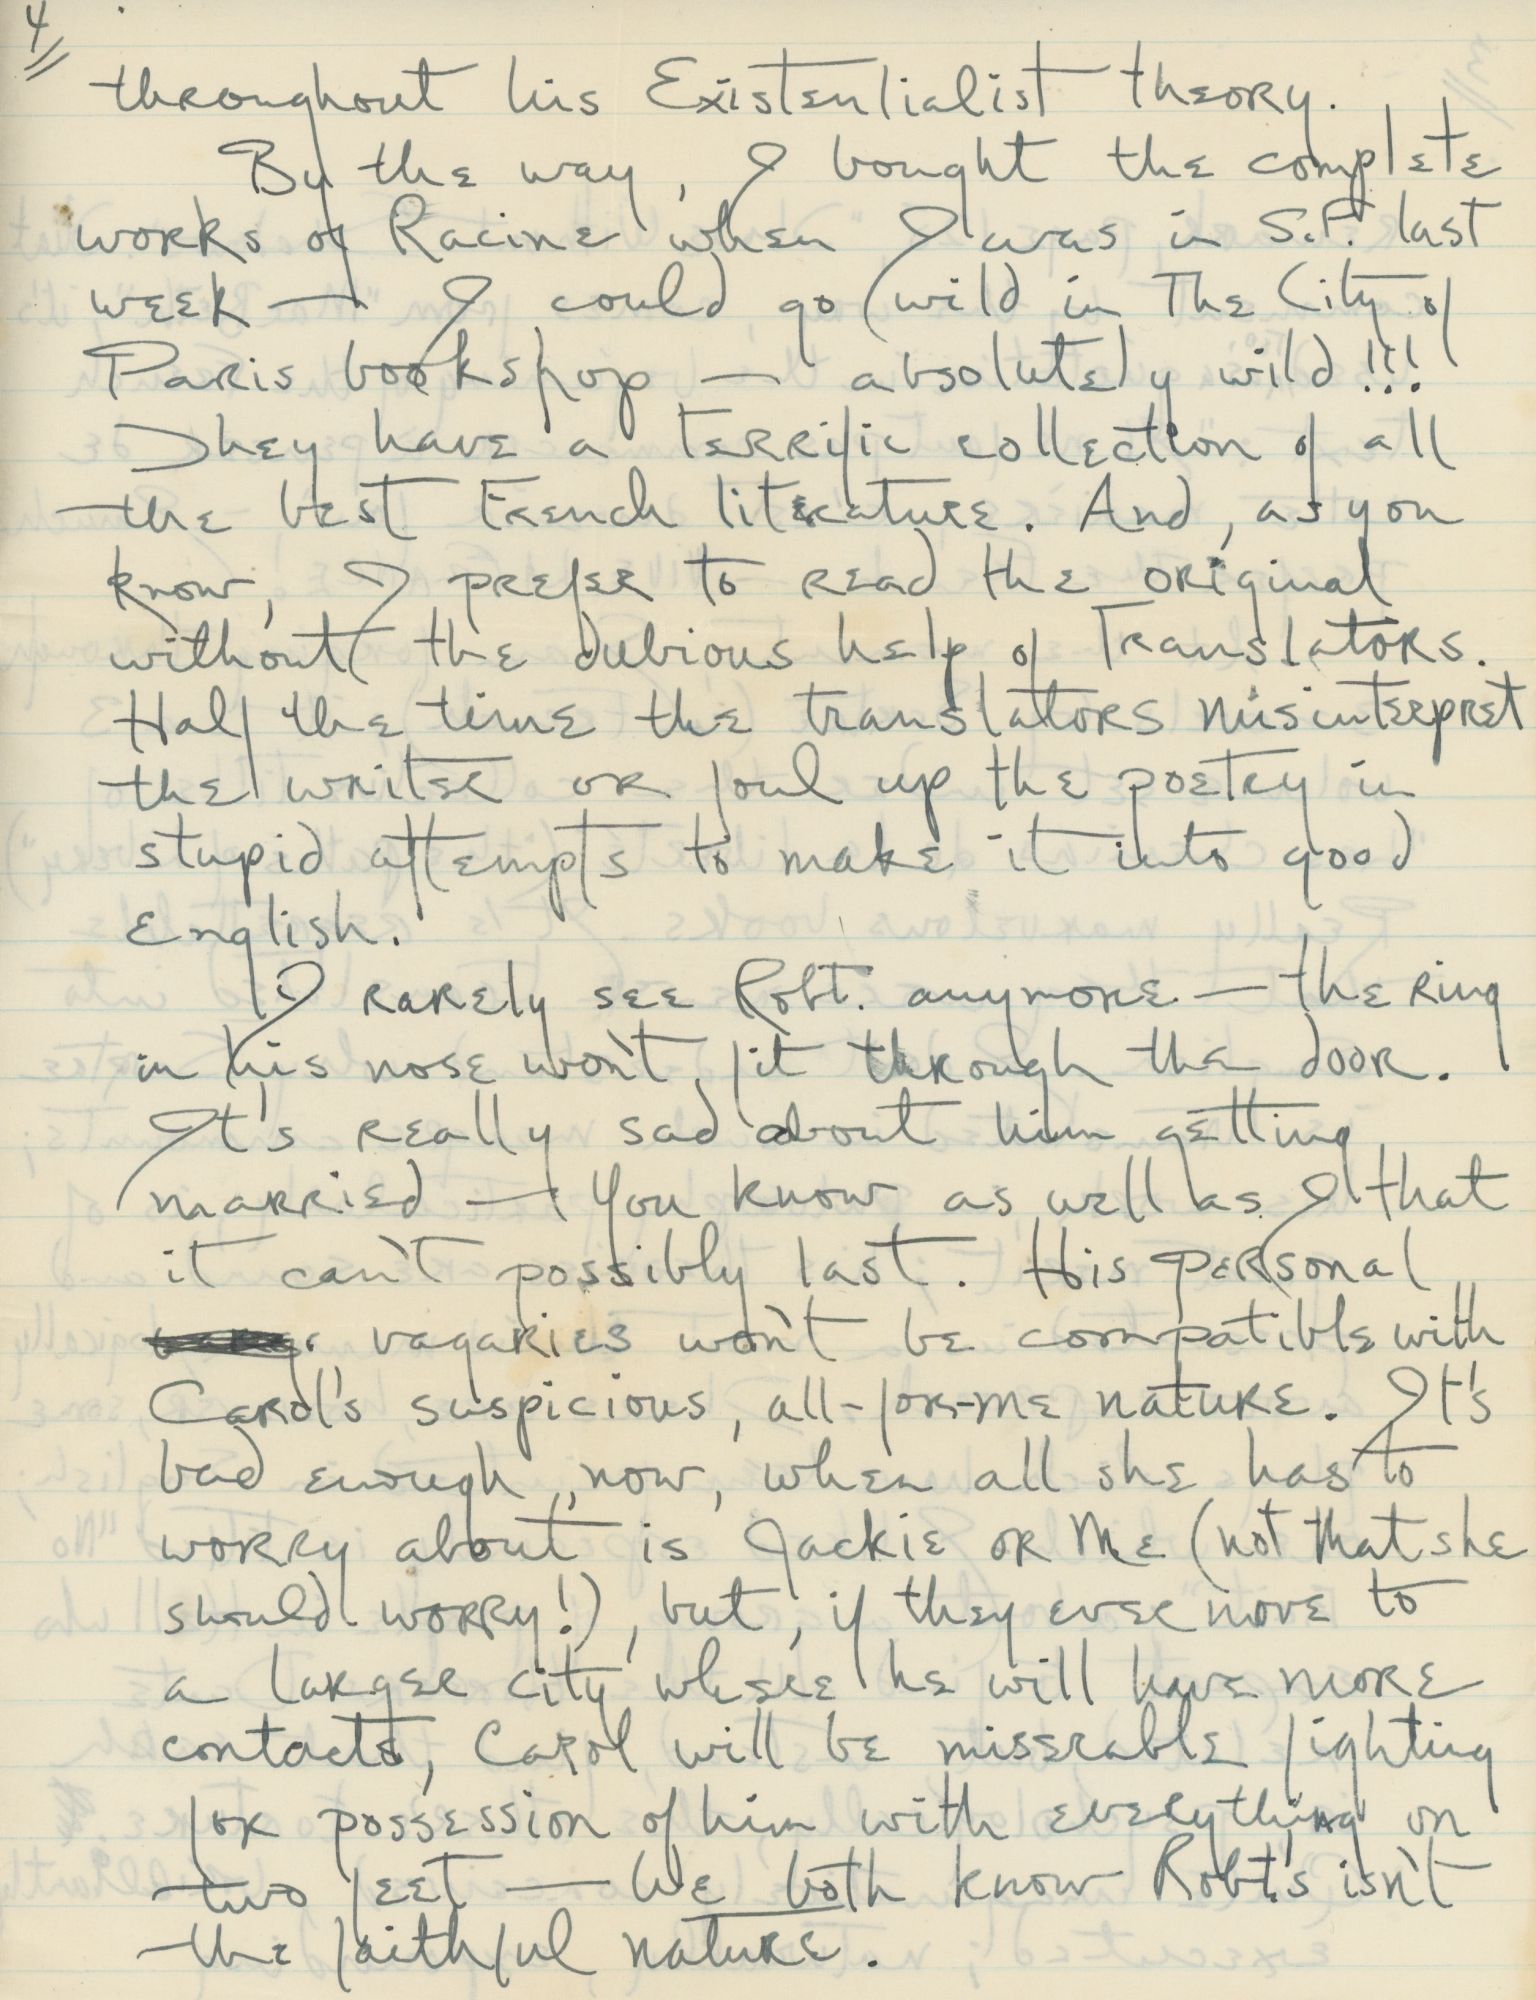 4
throughout his Existentialist theory.
By the way, I bought the complete
works of Racine when I was in S.F. last
week — I could go wild in The City of
Paris bookshop — absolutely wild!!!
They have a terrific collection of all
the best French literature. And, as you
know, I prefer to read the original
without the dubious help of Translators.
Half the time the translators misinterpret
the writer or foul up the poetry in
stupid attempts to make it into good
English.
I rarely see Robt. anymore — the ring
in his nose won't fit through the door.
It's really sad about him getting
married — You know as well as I that
it can't possibly last. His personal
vagaries won't be compatible with
Carol's suspicious, all-for-me nature. It's
bad enough, now, when all she has to
worry about is Jackie or Me (not that she
should worry!), but, if they ever move to
a larger city where he will have more
contacts, Carol will be miserable fighting
for possession of him with everything on
two feet — We both know Robt.'s isn't
the faithful nature.